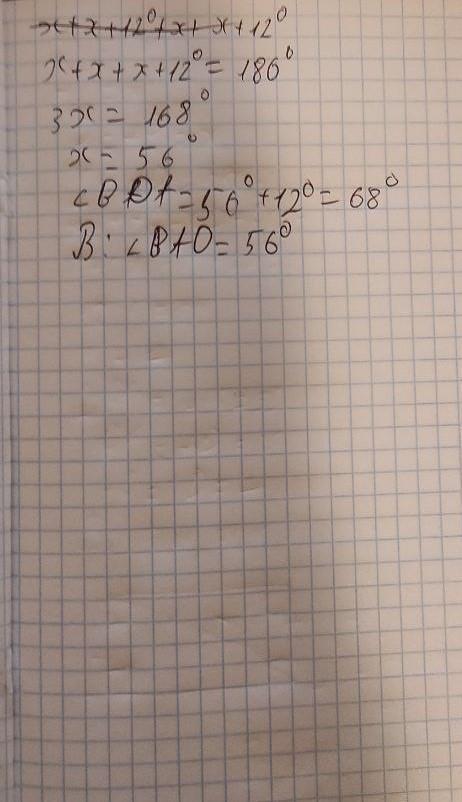 x+x+12°+x+x+12°
x+x+x+12°=180°
3x=168°
x=56°
∠BOA=56°+12°=68°
B:∠BAO=56°